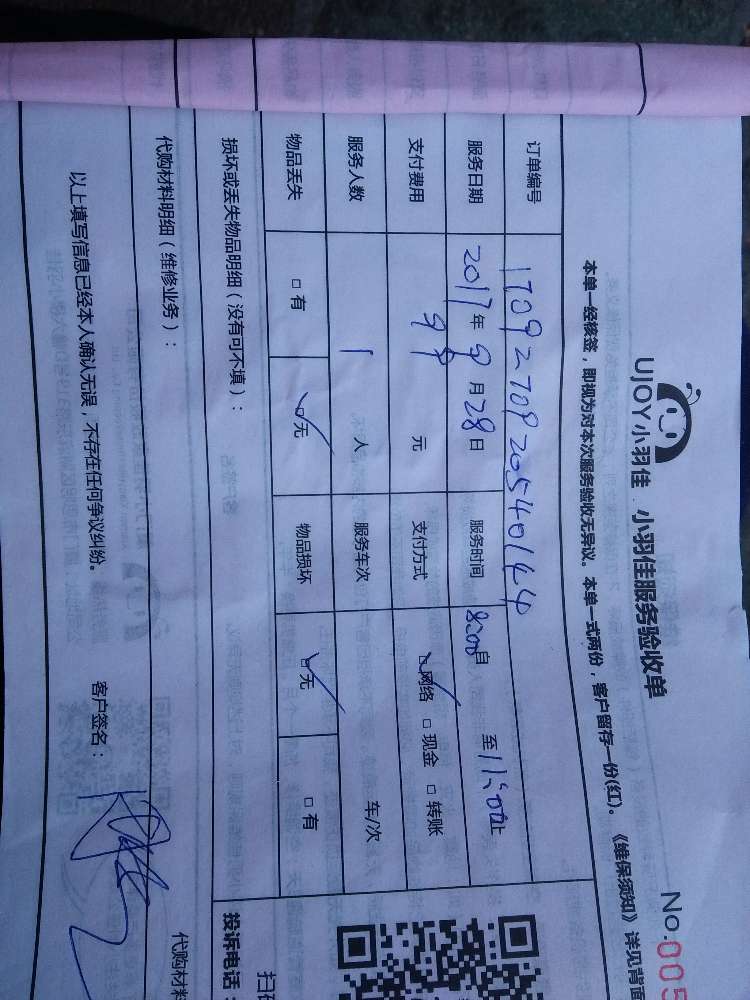 UJOY小羽佳 小羽佳服务验收单
No.005
本单一经核签，即视为对本次服务验收无异议。本单一式两份，客户留存一份(红)。《维保须知》详见背面
订单编号 1709270920540144
服务日期 2017年9月28日 服务时间 8:00自 至11:00止
支付费用 99元 支付方式 □网络 □现金 □转账
服务人数 1人 服务车次 车/次
物品丢失 □有 □无 物品损坏 □无 □有
损坏或丢失物品明细（没有可不填）：
投诉电话：
代购材料明细（维修业务）：
代购材料
以上填写信息已经本人确认无误，不存在任何争议纠纷。 客户签名：